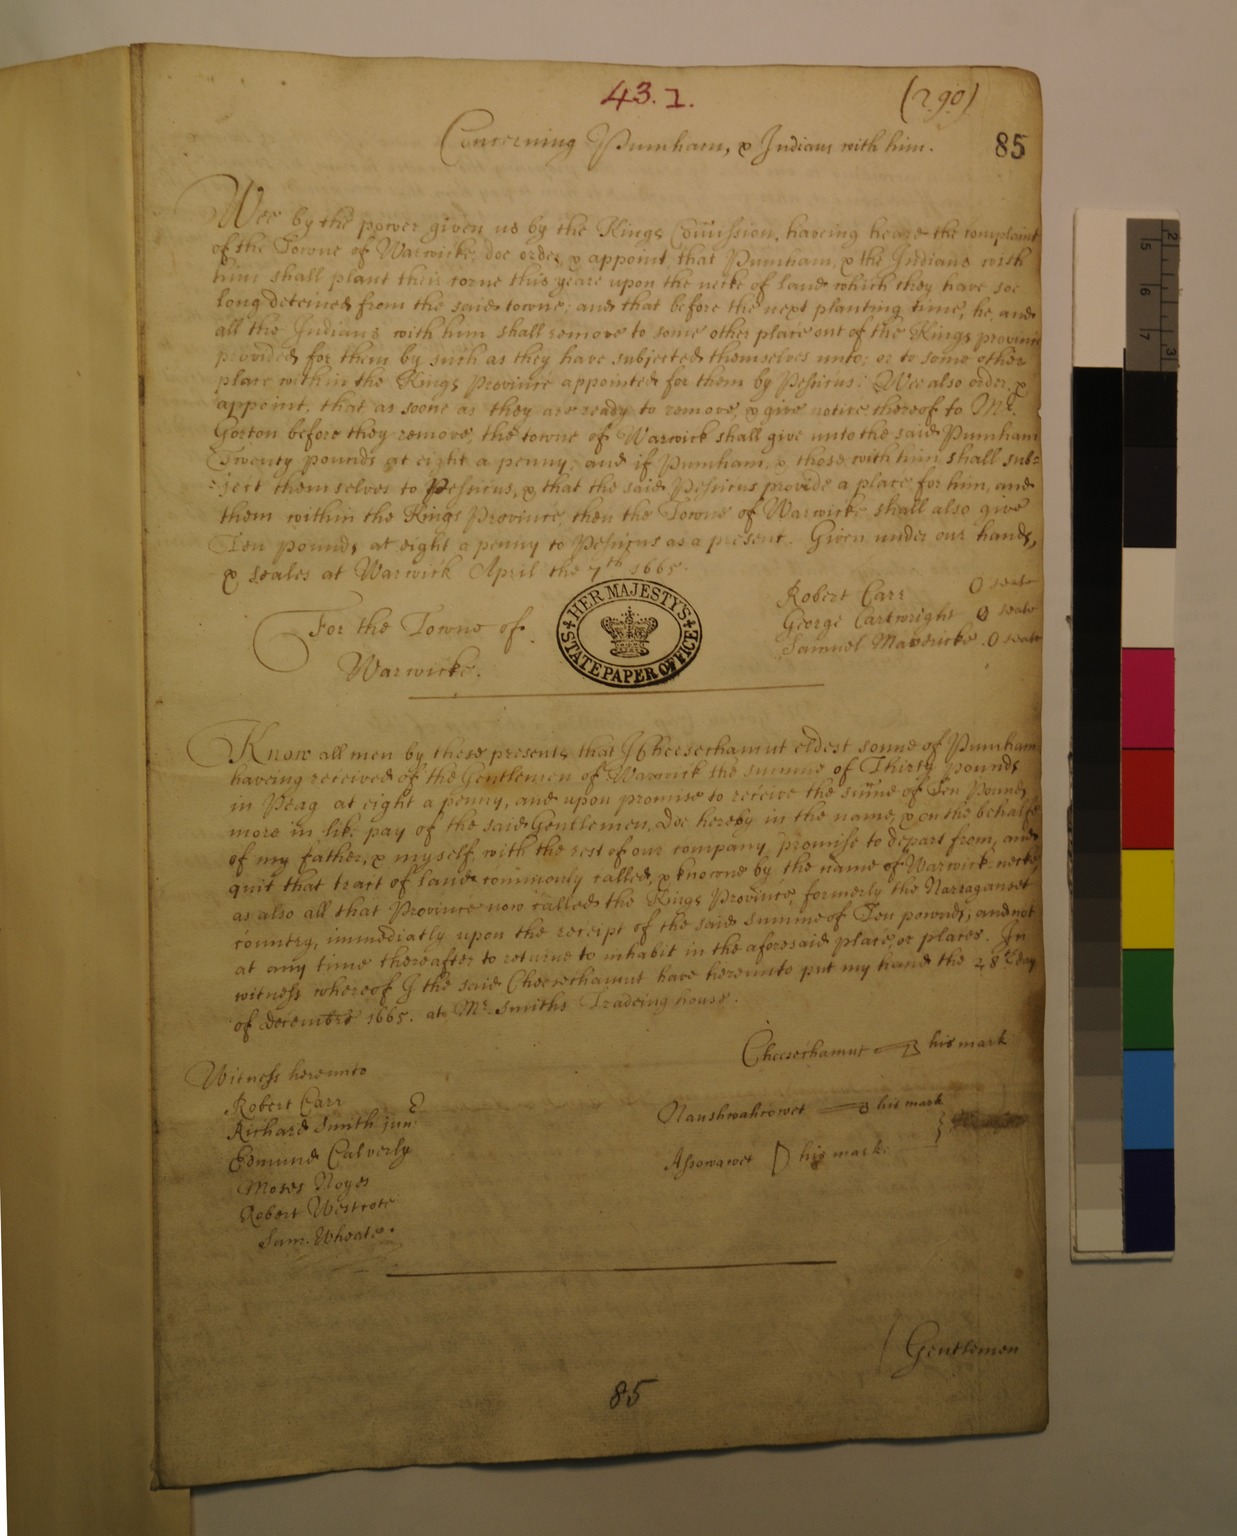 43. 1.
(290)
85
Concerning Pumham, & Indians with him.
Wee by the power given us by the Kings Com̄ission, having heard the complaint
of the Towne of Warwicke, doe order, & appoint, that Pumham, & the Indians with
him shall plant their corne this yeare upon the necke of land which they have soe
long deteined from the said towne; and that before the next planting time, he, and
all the Indians with him shall remove to some other place out of the Kings province
provided for them by such as they have subjected themselves unto; or to some other
place within the Kings Province appointed for them by Pessicus: Wee also order, &
appoint, that as soone as they are ready to remove, & give notice thereof to Mr.
Gorton before they remove, the towne of Warwick shall give unto the said Pumham
Twenty pounds at eight a penny; and if Pumham, & those with him shall sub=
=ject themselves to Pessicus, & that the said Pessicus provide a place for him, and
them within the Kings Province, then the Towne of Warwicke shall also give
Ten pounds at eight a penny to Pessicus as a present. Given under our hands,
& seales at Warwick April the 7th 1665.
Robert Carr O seale
George Cartwright O seale
Samuel Mavericke. O seale
For the Towne of
Warwicke.
HER MAJESTY'S
STATE PAPER OFFICE
Know all men by these presents that I Cheesechamut eldest sonne of Pumham
having received of the Gentlemen of Warwick the summe of Thirty pounds
in Peag at eight a penny, and upon promise to receive the sum̄e of Ten Pounds
more in like pay of the said Gentlemen, Doe hereby in the name, & on the behalfe
of my father, & myself, with the rest of our company, promise to depart from, and
quit that tract of land commonly called, & knowne by the name of Warwick necke,
as also all that Province now called the Kings Province, formerly the Narraganset
country, immediatly upon the receipt of the said summe of Ten pownds, and not
at any time thereafter to returne to inhabit in the aforesaid place, or places. In
witness whereof I the said Cheesechamut have hereunto put my hand the 28th day
of decembre 1665. at Mr. Smiths Tradeing house.
Cheesechamut his mark
Witness hereunto
Robert Carr
Richard Smith jun:
Edmund Calverly
Moses Noyes
Robert Westcote
Sam. Wheate.
Naushwahcowet his mark
Assowawet his marke
Gentlemen
85
15
16
17
2
3